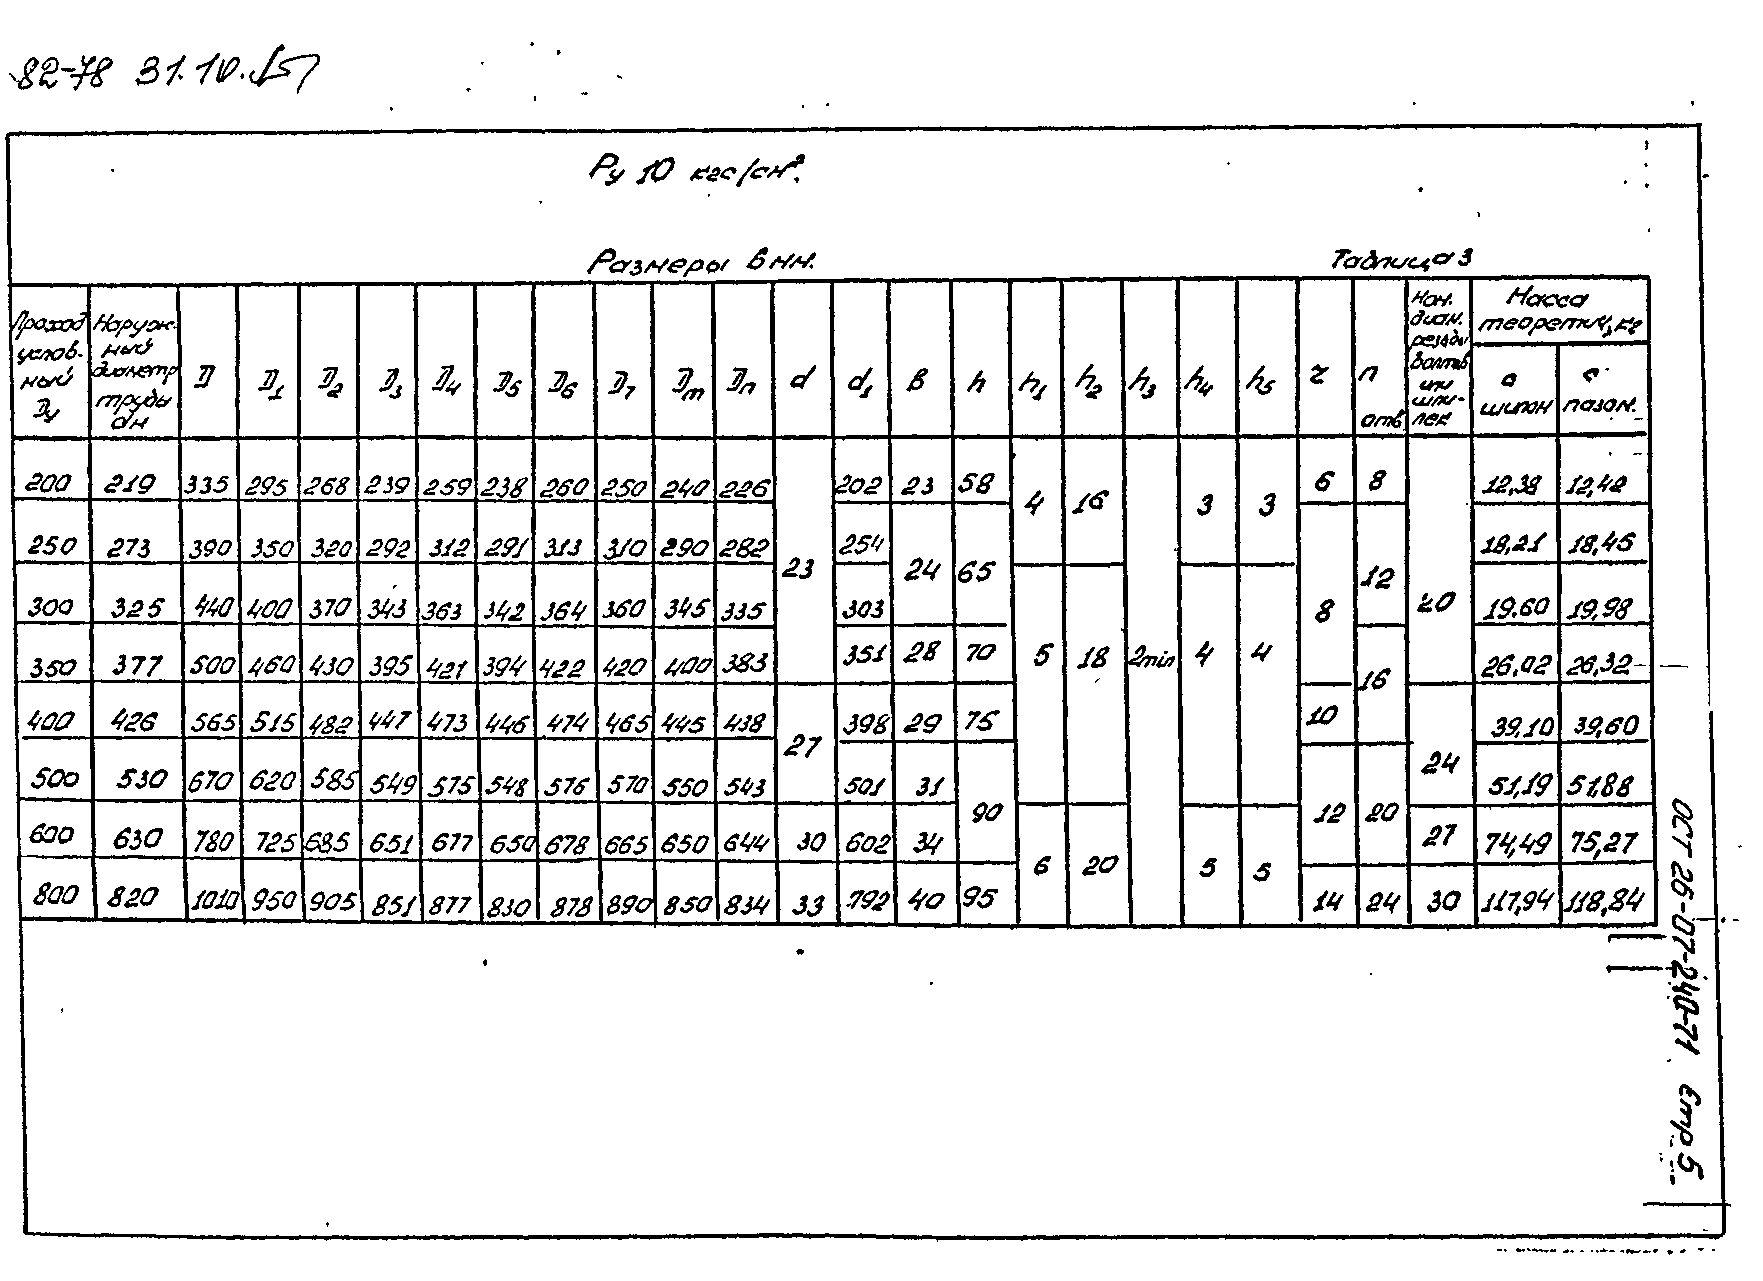 82-78 31.10.
Ру 10 кгс/см².
Размеры в мм. Таблица 3
Проход условный Ду | Наружный диаметр трубы dн | D | D1 | D2 | D3 | D4 | D5 | D6 | D7 | Dm | Dп | d | d1 | в | h | h1 | h2 | h3 | h4 | h5 | r | n отв | Ном. диам. резьбы болтов или шпилек | Масса теоретич, кг
с шипом | с пазом.
200 219 335 295 268 239 259 238 260 250 240 226 23 202 23 58 4 16 2min 3 3 6 8 20 12,38 12,42
250 273 390 350 320 292 312 291 313 310 290 282 254 24 65 8 12 18,21 18,45
300 325 440 400 370 343 363 342 364 360 345 335 303 5 18 4 4 19.60 19,98
350 377 500 460 430 395 421 394 422 420 400 383 351 28 70 16 26,02 26,32
400 426 565 515 482 447 473 446 474 465 445 438 27 398 29 75 10 24 39,10 39,60
500 530 670 620 585 549 575 548 576 570 550 543 501 31 90 12 20 51,19 51,88
600 630 780 725 685 651 677 650 678 665 650 644 30 602 34 6 20 5 5 27 74,49 75,27
800 820 1010 950 905 851 877 830 878 890 850 834 33 792 40 95 14 24 30 117,94 118,84
ОСТ 26-07-240-71 Стр 5